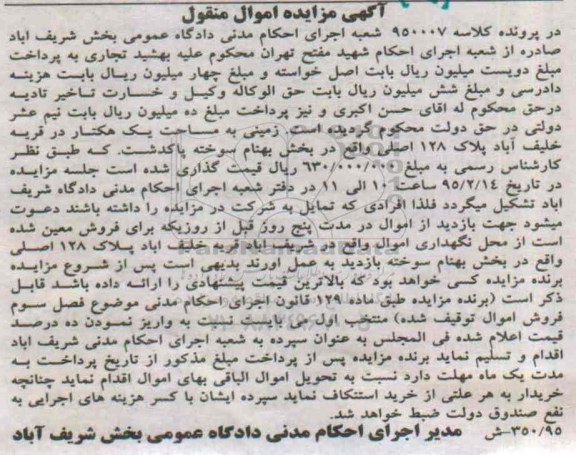 آگهی مزایده اموال منقول
در پرونده کلاسه ۹۵۰۰۰۷ شعبه اجرای احکام مدنی دادگاه عمومی بخش شریف اباد
صادره از شعبه اجرای احکام شهید مفتح تهران محکوم علیه بهشید تجاری به پرداخت
مبلغ دویست میلیون ریال بابت اصل خواسته و مبلغ چهار میلیون ریال بابت هزینه
دادرسی و مبلغ شش میلیون ریال بابت حق الوکاله وکیل و خسارت تاخیر تادیه
درحق محکوم له اقای حسن اکبری و نیز پرداخت مبلغ ده میلیون ریال بابت نیم عشر
دولتی در حق دولت محکوم گردیده است. زمینی به مساحت یک هکتار در قریه
خلیف آباد پلاک ۱۲۸ اصلی واقع در بخش بهنام سوخته پاکدشت. که طبق نظر
کارشناس رسمی به مبلغ ۶۳۰/۰۰۰/۰۰۰ ریال قیمت گذاری شده است جلسه مزایده
در تاریخ ۹۵/۲/۱۴ ساعت ۱۰ الی ۱۱ در دفتر شعبه اجرای احکام مدنی دادگاه شریف
اباد تشکیل میگردد فلذا افرادی که تمایل به شرکت در مزایده را داشته باشند دعوت
میشود جهت بازدید از اموال در مدت پنج روز قبل از روزیکه برای فروش معین شده
است از محل نگهداری اموال واقع در شریف اباد قریه خلیف اباد پلاک ۱۲۸ اصلی
واقع در بخش بهنام سوخته بازدید به عمل اورند بدیهی است پس از شروع مزایده
برنده مزایده کسی خواهد بود که بالاترین قیمت پیشنهادی را ارائه داده باشد قابل
ذکر است (برنده مزایده طبق ماده ۱۲۹ قانون اجرای احکام مدنی موضوع فصل سوم
فروش اموال توقیف شده) منتخب اول می بایست نسبت به واریز نمودن ده درصد
قیمت اعلام شده فی المجلس به عنوان سپرده به شعبه اجرای احکام مدنی شریف اباد
اقدام و تسلیم نماید برنده مزایده پس از پرداخت مبلغ مذکور از تاریخ پرداخت به
مدت یک ماه مهلت دارد نسبت به تحویل اموال الباقی بهای اموال اقدام نماید چنانچه
خریدار به هر علتی از خرید استنکاف نماید سپرده ایشان با کسر هزینه های اجرایی به
نفع صندوق دولت ضبط خواهد شد.
۳۵۰/۹۵-ش مدیر اجرای احکام مدنی دادگاه عمومی بخش شریف آباد